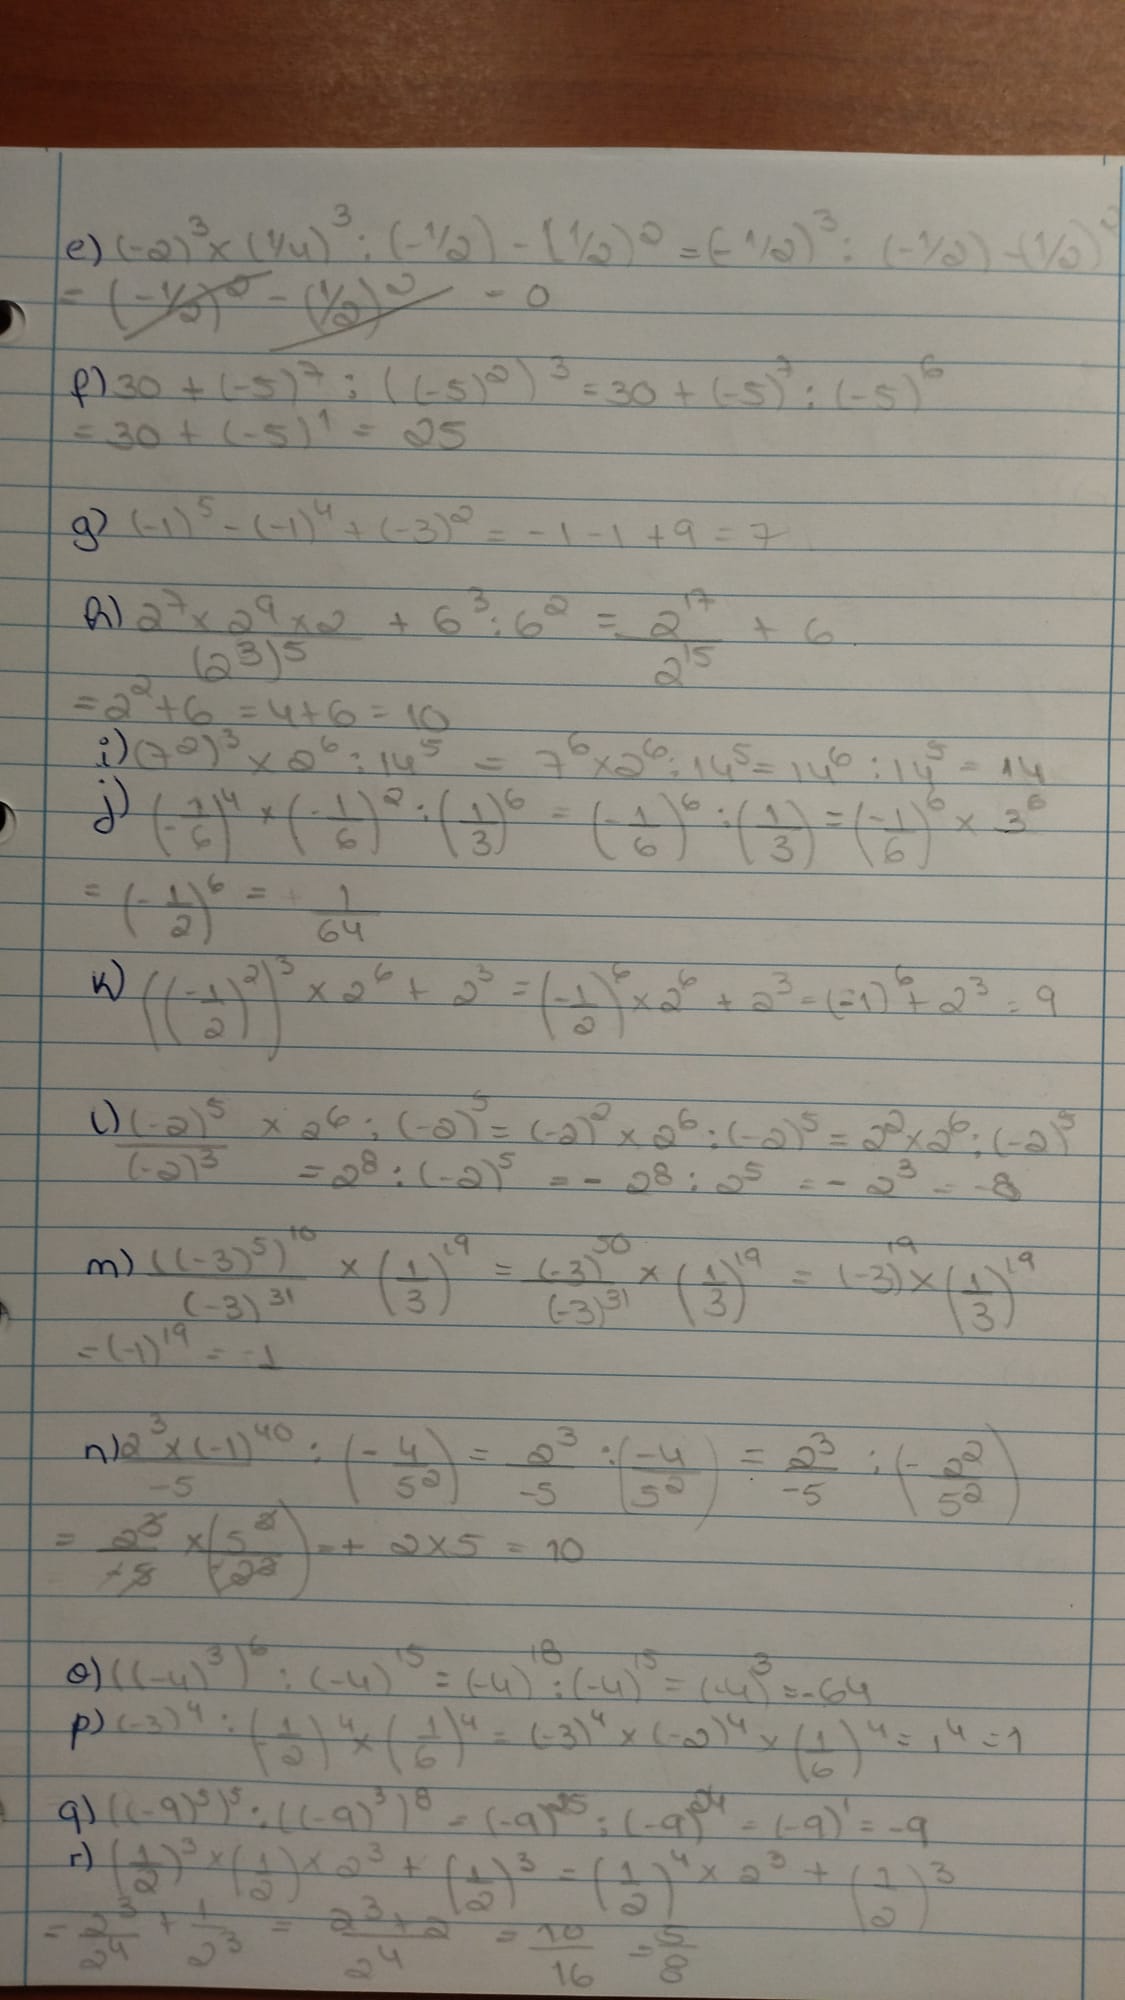 e) (-2)³ × (1/4)³ : (-1/2) - (1/2)² = (-1/2)³ : (-1/2) - (1/2)²
= (-1/2)² - (1/2)² = 0
f) 30 + (-5)⁷ : ((-5)²)³ = 30 + (-5)⁷ : (-5)⁶
= 30 + (-5)¹ = 25
g) (-1)⁵ - (-1)⁴ + (-3)² = -1 -1 + 9 = 7
h) (2⁷ × 2⁹ × 2)/(2³)⁵ + 6³ : 6² = 2¹⁷/2¹⁵ + 6
= 2² + 6 = 4 + 6 = 10
i) (7²)³ × 2⁶ : 14⁵ = 7⁶ × 2⁶ : 14⁵ = 14⁶ : 14⁵ = 14
j) (-1/6)⁴ × (-1/6)² : (1/3)⁶ = (-1/6)⁶ : (1/3) = (-1/6)⁶ × 3⁶
= (-1/2)⁶ = 1/64
k) ((-1/2)²)³ × 2⁶ + 2³ = (-1/2)⁶ × 2⁶ + 2³ = (-1)⁶ + 2³ = 9
l) (-2)⁵/(-2)³ × 2⁶ : (-2)⁵ = (-2)² × 2⁶ : (-2)⁵ = 2² × 2⁶ : (-2)⁵
= 2⁸ : (-2)⁵ = - 2⁸ : 2⁵ = - 2³ = -8
m) ((-3)⁵)¹⁰/(-3)³¹ × (1/3)¹⁹ = (-3)⁵⁰/(-3)³¹ × (1/3)¹⁹ = (-3)¹⁹ × (1/3)¹⁹
= (-1)¹⁹ = -1
n) (2³ × (-1)⁴⁰)/-5 : (-4/5²) = 2³/-5 : (-4/5²) = 2³/-5 : (-2²/5²)
= 2³/-5 × (5²/-2²) = + 2 × 5 = 10
o) ((-4)³)⁶ : (-4)¹⁵ = (-4)¹⁸ : (-4)¹⁵ = (-4)³ = -64
p) (-3)⁴ : (-1/2)⁴ × (1/6)⁴ = (-3)⁴ × (-2)⁴ × (1/6)⁴ = 1⁴ = 1
q) ((-9)⁵)⁵ : ((-9)³)⁸ = (-9)²⁵ : (-9)²⁴ = (-9)¹ = -9
r) (1/2)³ × (1/2) × 2³ + (1/2)³ = (1/2)⁴ × 2³ + (1/2)³
= 2³/2⁴ + 1/2³ = (2³ + 2)/2⁴ = 10/16 = 5/8